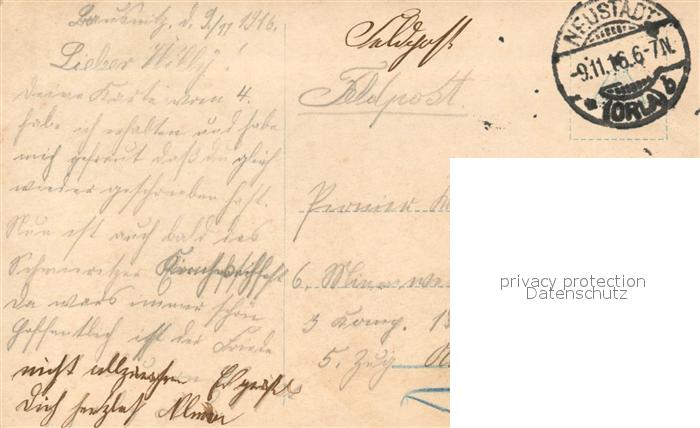 Bausnitz, d. 9/11 1916.
Lieber Willy!
Deine Karte vom 4.
habe ich erhalten und habe
mich gefreut daß du gleich
wieder geschrieben hast.
Nun ist auch bald das
Schmieritzer Kirchweihfest
da wars immer schön
Hoffentlich ist der Friede
nicht allzu Es grüßt
Dich herzlich Alma
Feldpost
Feldpost.
NEUSTADT
-9.11.16.6-7N.
* (ORLA) b
Pionier
6. Minenwe
3 Komp. 1
5. Zug
privacy protection
Datenschutz